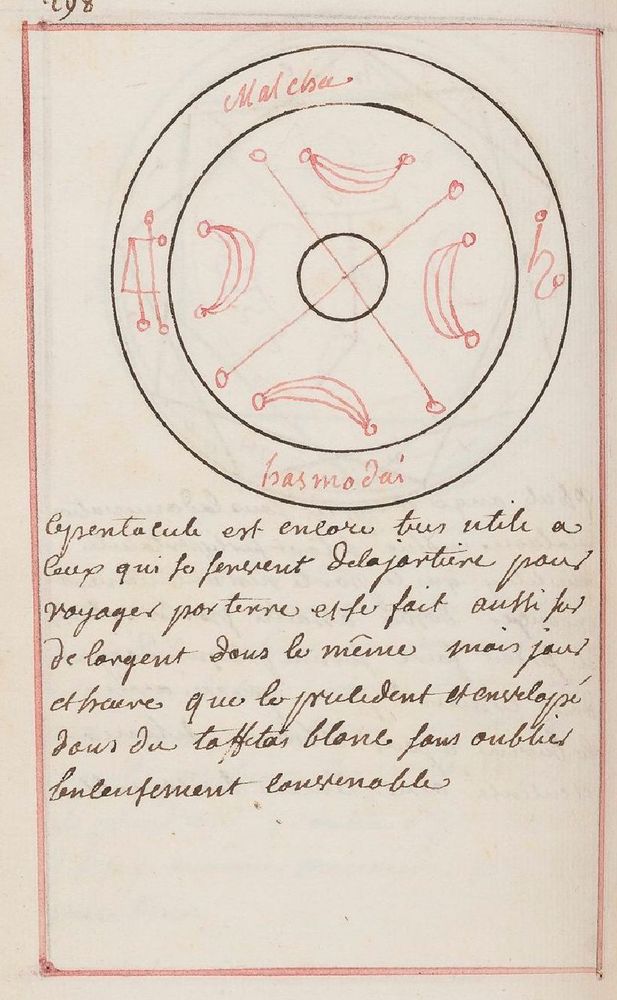 298
Malcha
hasmodai
le pentacule est encore tres utile a
ceux qui se servent de la jartiere pour
voyager par terre et se fait aussi sur
de largent dans le même mois jour
et heure que le precedent et envelopé
dans du taffetas blanc sans oublier
lencensement convenable